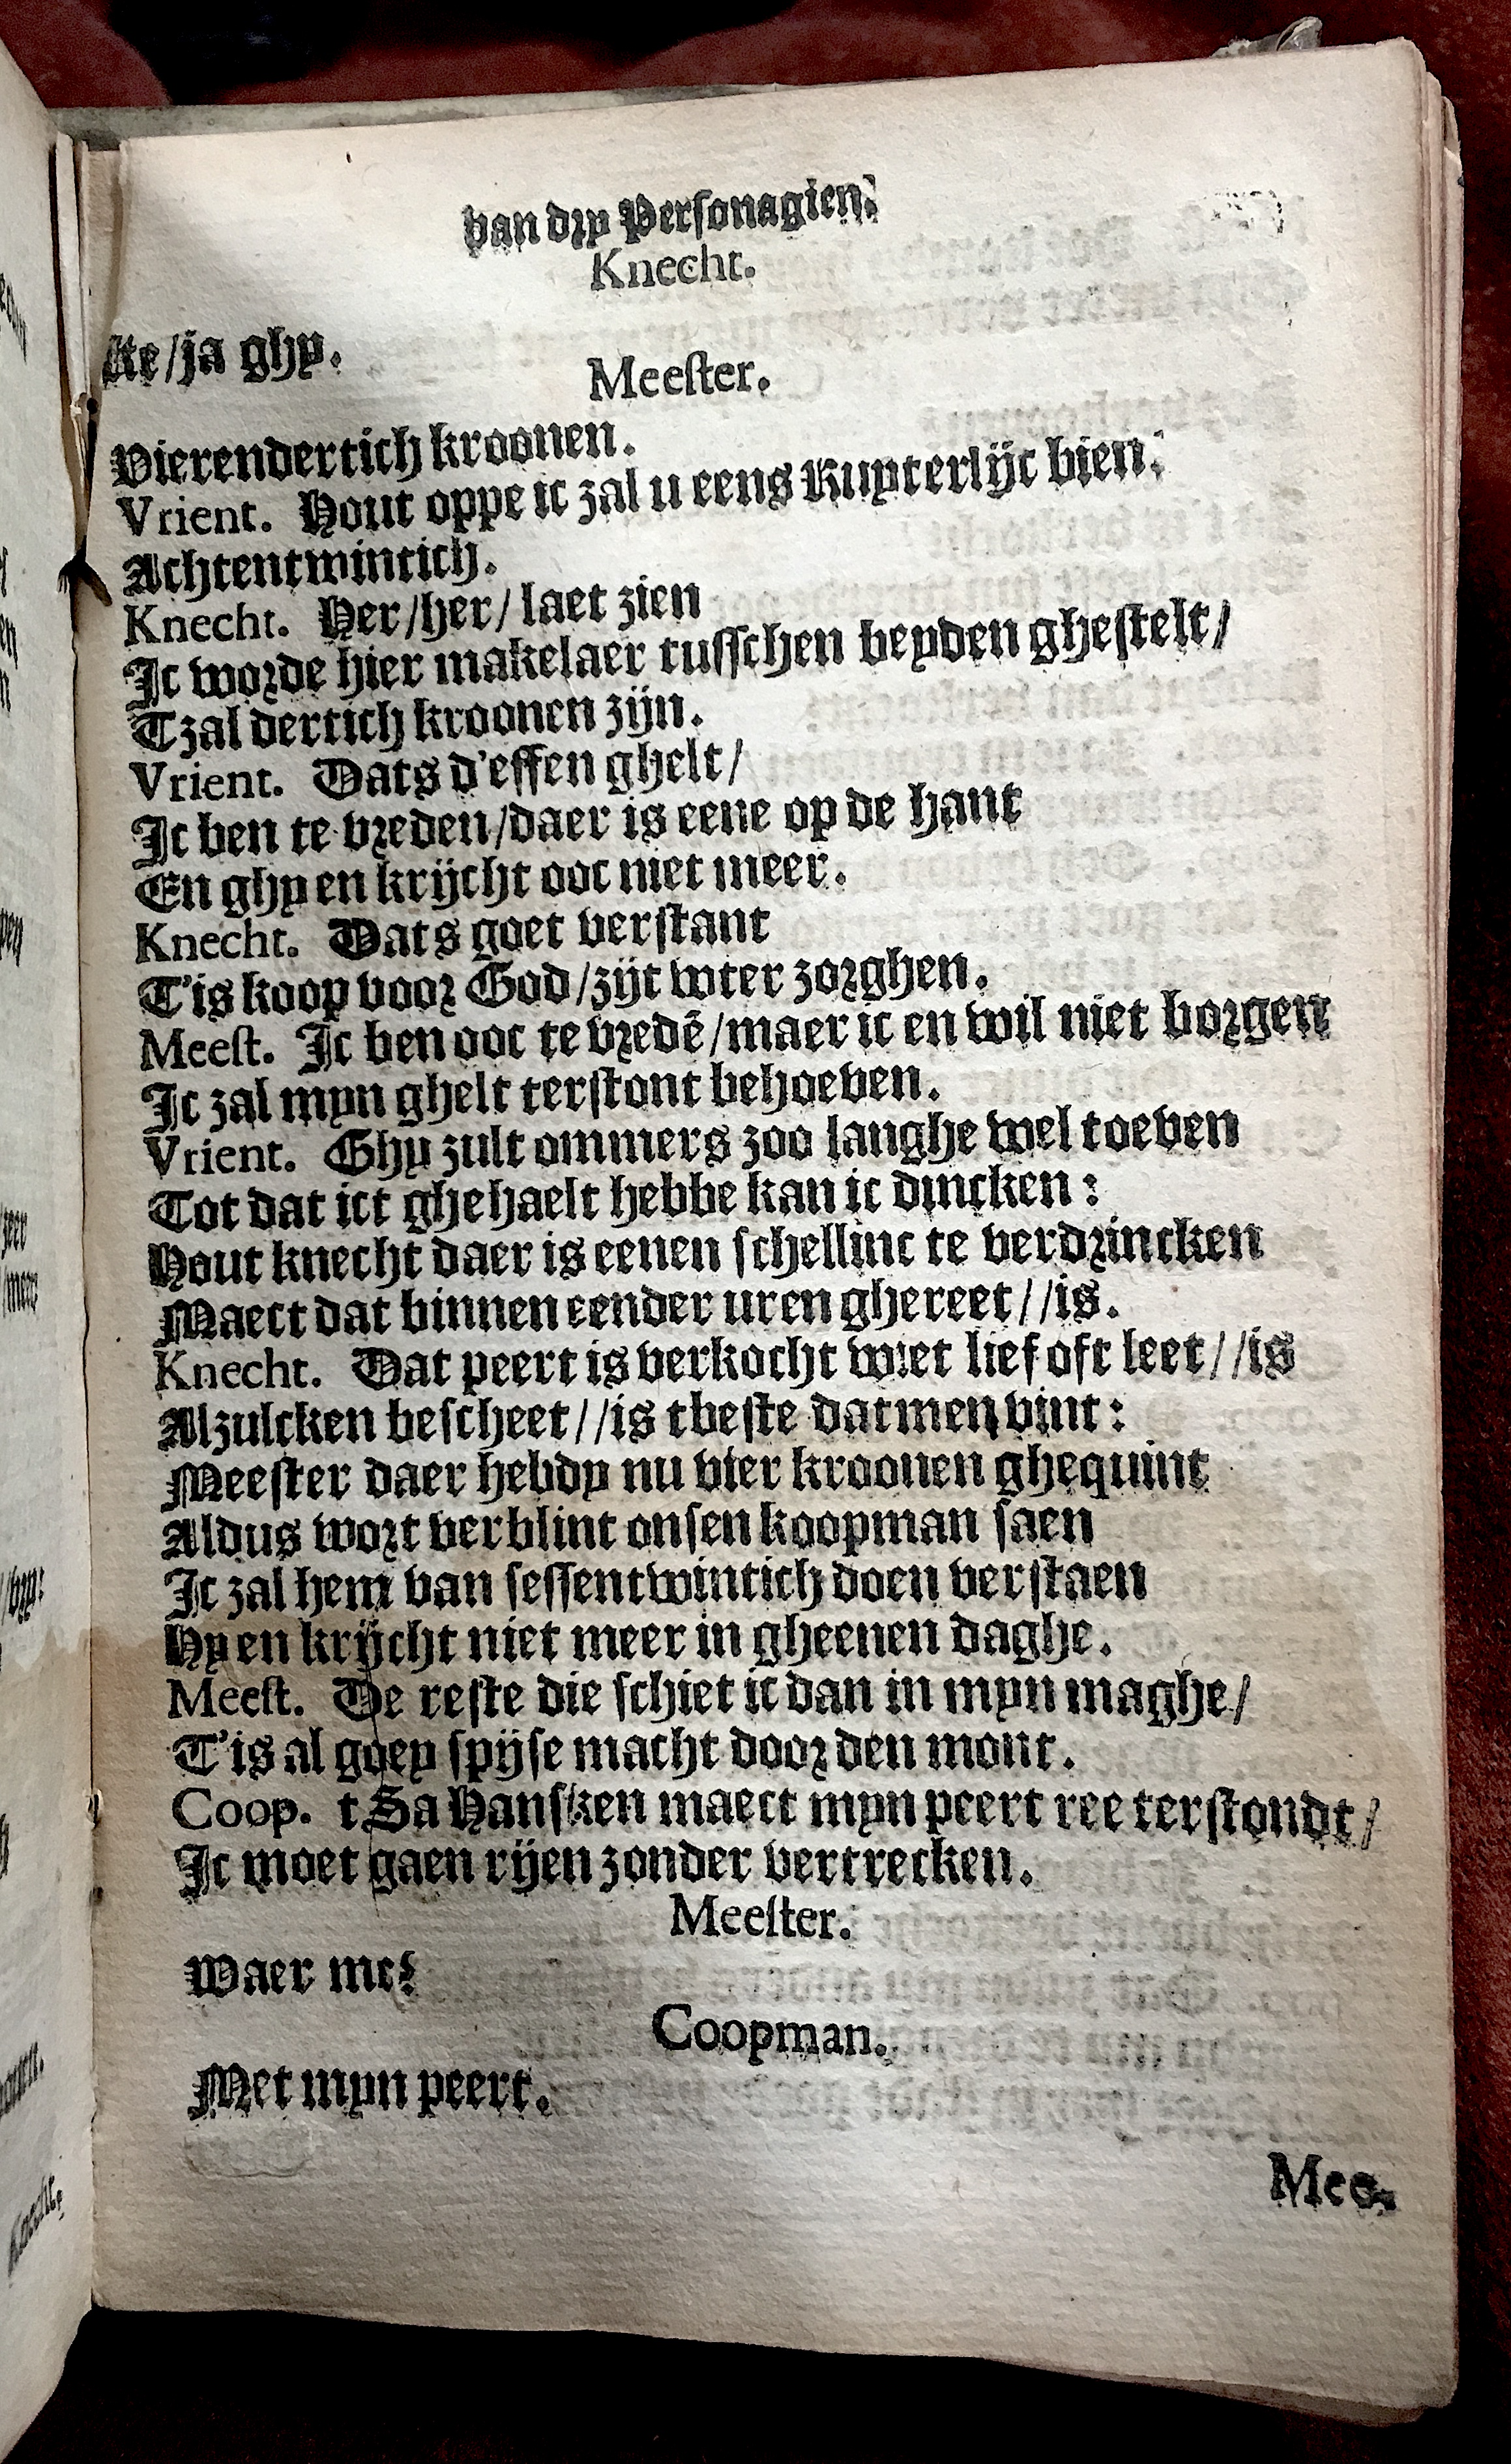 van dry Personagien.
Knecht.
Ae/ja ghy.
Meester.
Vierendertich kroonen.
Vrient. Hout oppe ic zal u eens Ruyterlijc bien.
Achtentwintich.
Knecht. Her/her/ laet zien
Ic worde hier makelaer tusschen beyden ghestelt/
Tzal dertich kroonen zijn.
Vrient. Dats d'effen ghelt/
Ic ben te vreden/daer is eene op de hant
En ghy en krijcht ooc niet meer.
Knecht. Dats goet verstant
T'is koop voor God/zijt wter zorghen.
Meest. Ic ben ooc te vredē/maer ic en wil niet borgen
Ic zal myn ghelt terstont behoeven.
Vrient. Ghy zult ommers zoo langhe wel toeven
Tot dat ict ghehaelt hebbe kan ic dincken:
Hout knecht daer is eenen schellinc te verdrincken
Maect dat binnen eender uren ghereet//is.
Knecht. Dat peert is verkocht wiet lief oft leet//is
Alzulcken bescheet//is tbeste datmen vint:
Meester daer hebdy nu vier kroonen ghequint
Aldus wort verblint onsen koopman saen
Ic zal hem van sessentwintich doen verstaen
Hy en krijcht niet meer in gheenen daghe.
Meest. De reste die schiet ic dan in myn maghe/
T'is al goey spijse macht door den mont.
Coop. t Sa Hansken maect myn peert ree terstondt/
Ic moet gaen rijen zonder vertrecken.
Meester.
Waer me?
Coopman.
Met myn peert.
Mee-